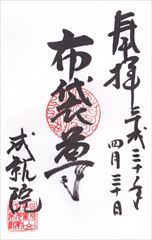 奉拝 平成三十年
四月三十日
布袋尊
成就院